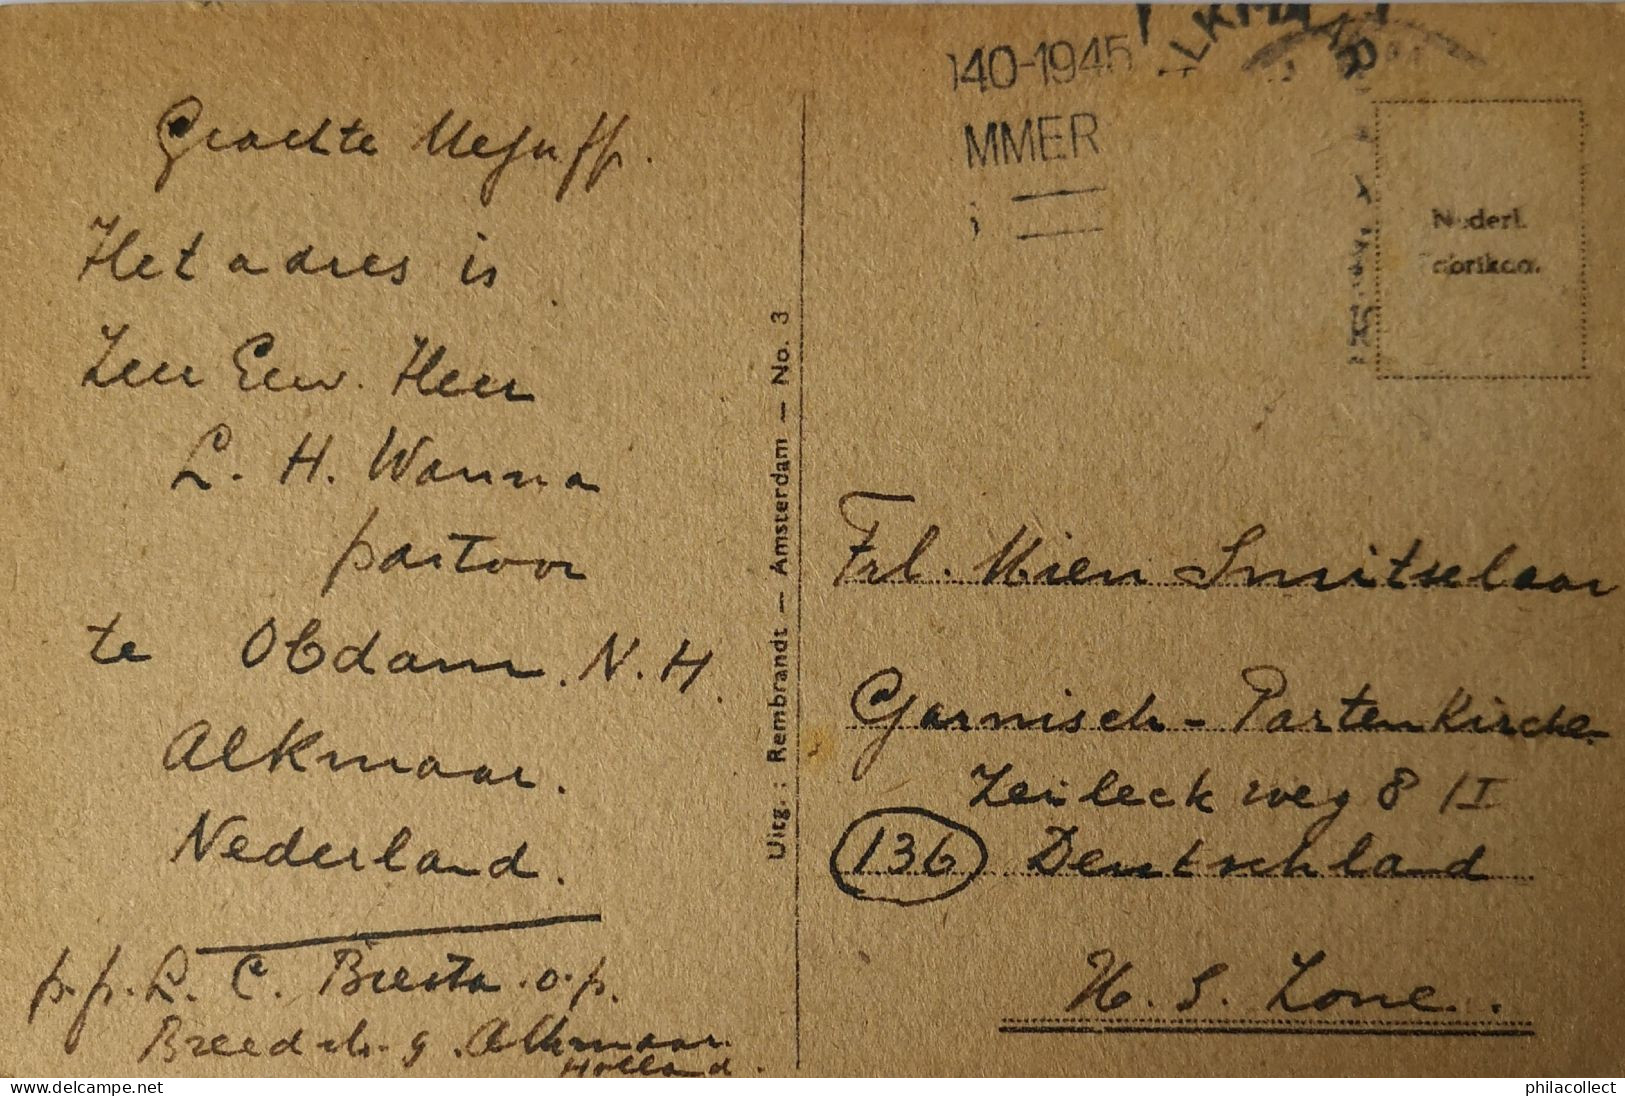 Geachte Mejuff.
Het adres is
Zeer Eerw. Heer
L. H. Wanna
pastoor
te Obdam. N. H.
Alkmaar.
Nederland.
p.p. L. C. Biesta o.p.
Alkmaar.
Holland.
Uitg.: Rembrandt — Amsterdam — No. 3
940-1945
MMER
ALKMAAR
Nederl.
Fabrikaa.
Frl. Mien Smitselaar
Garmisch-Partenkirche
weg 8 II
136 Deutschland
U. S. Zone.
philacollect